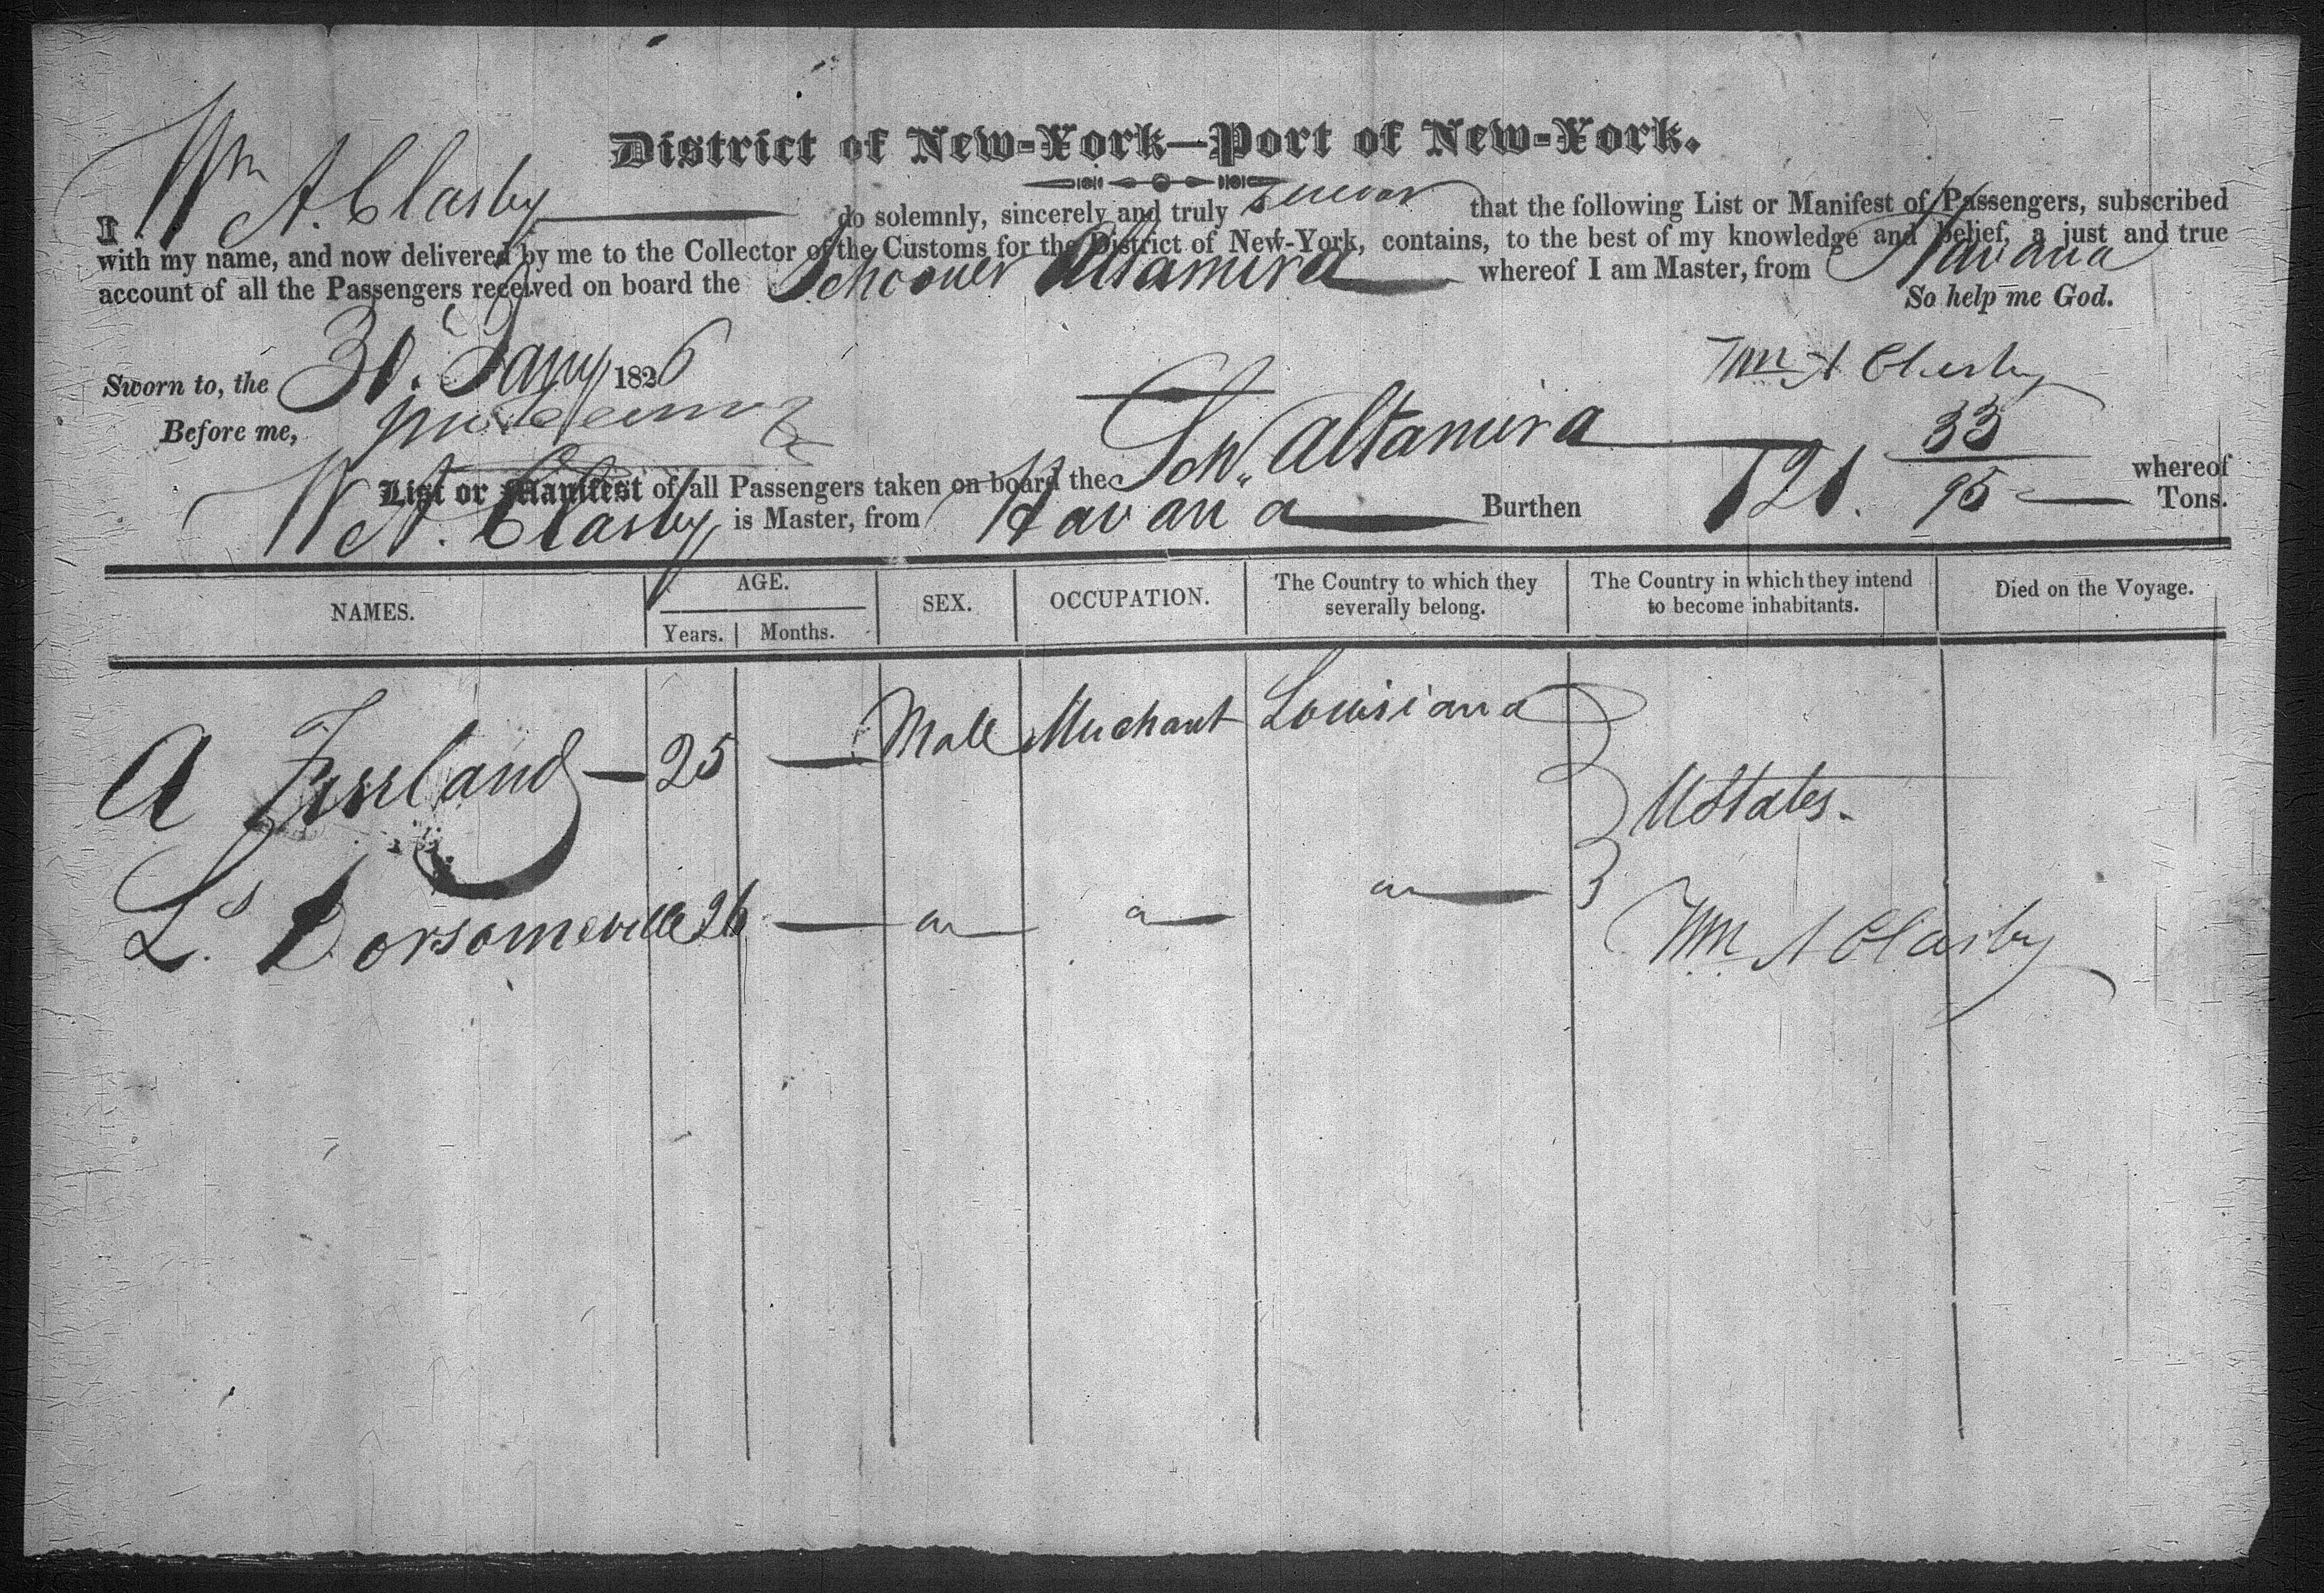 District of New-York—Port of New-York.
I Wm A. Clasby do solemnly, sincerely and truly swear that the following List or Manifest of Passengers, subscribed
with my name, and now delivered by me to the Collector of the Customs for the District of New-York, contains, to the best of my knowledge and belief, a just and true
account of all the Passengers received on board the Schooner Altamira whereof I am Master, from Havana
So help me God.
Sworn to, the 30. Jany 1826
Wm A Clasby
Before me,
List or Manifest of all Passengers taken on board the Schr Altamira whereof
W A. Clasby is Master, from Havana Burthen 121. 33/95 Tons.
NAMES. AGE. Years. Months. SEX. OCCUPATION. The Country to which they severally belong. The Country in which they intend to become inhabitants. Died on the Voyage.
A 25 — Male Merchant Louisiana
UStates.
Ls Dorsomeville 26 —
Wm A Clasby